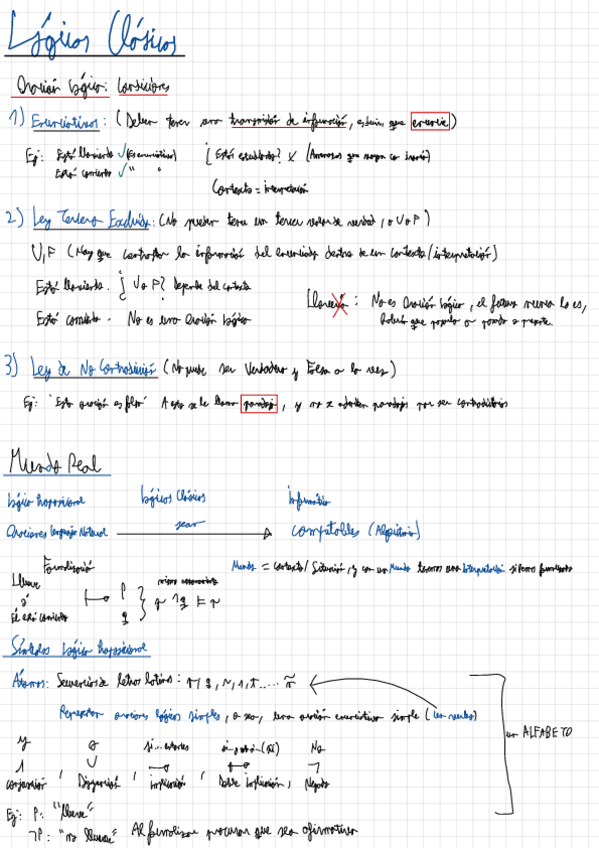 Lógicas Clásicas
Oración lógica: Condiciones
1) Enunciativas: (Deben tener una transmisión de información, es decir que enuncie)
Ej: Está lloviendo ✓ (Es enunciativa) ¿Estás estudiando? ✗
Está contento ✓ " "
Contexto = interpretación
2) Ley Tercero Excluido: (No pueden tener un tercer valor de verdad, o V o F)
V, F (Hay que contrastar la información del enunciado dentro de un contexto/interpretación)
Está lloviendo. ¿V o F? Depende del contexto
Está contento. No es una oración lógica
Lloverá: No es Oración lógica, el futuro nunca lo es,
3) Ley de No Contradicción (No puede ser Verdadero y Falso a la vez)
Ej: "Esta oración es falsa" A esto se le llama paradoja, y no se admiten paradojas por ser contradictorias
Mundo Real
Lógica Proposicional Lógicas Clásicas Informática
Oraciones Lenguaje Natural sean computables (Algoritmo)
Formalización Mundo = Contexto/Situación, y con un Mundo tenemos una interpretación
Llueve
p
q
Símbolos Lógica Proposicional
Átomos: Secuencias de letras latinas:
Representan oraciones lógicas simples, o sea, una oración enunciativa simple (un verbo)
un ALFABETO
y o si... entonces No
∧ ∨ → ↔ ¬
conjunción, Disyunción, implicación, Doble implicación, Negación
Ej: P: "llueve"
¬P: "no llueve" Al formalizar procurar que sea afirmativa